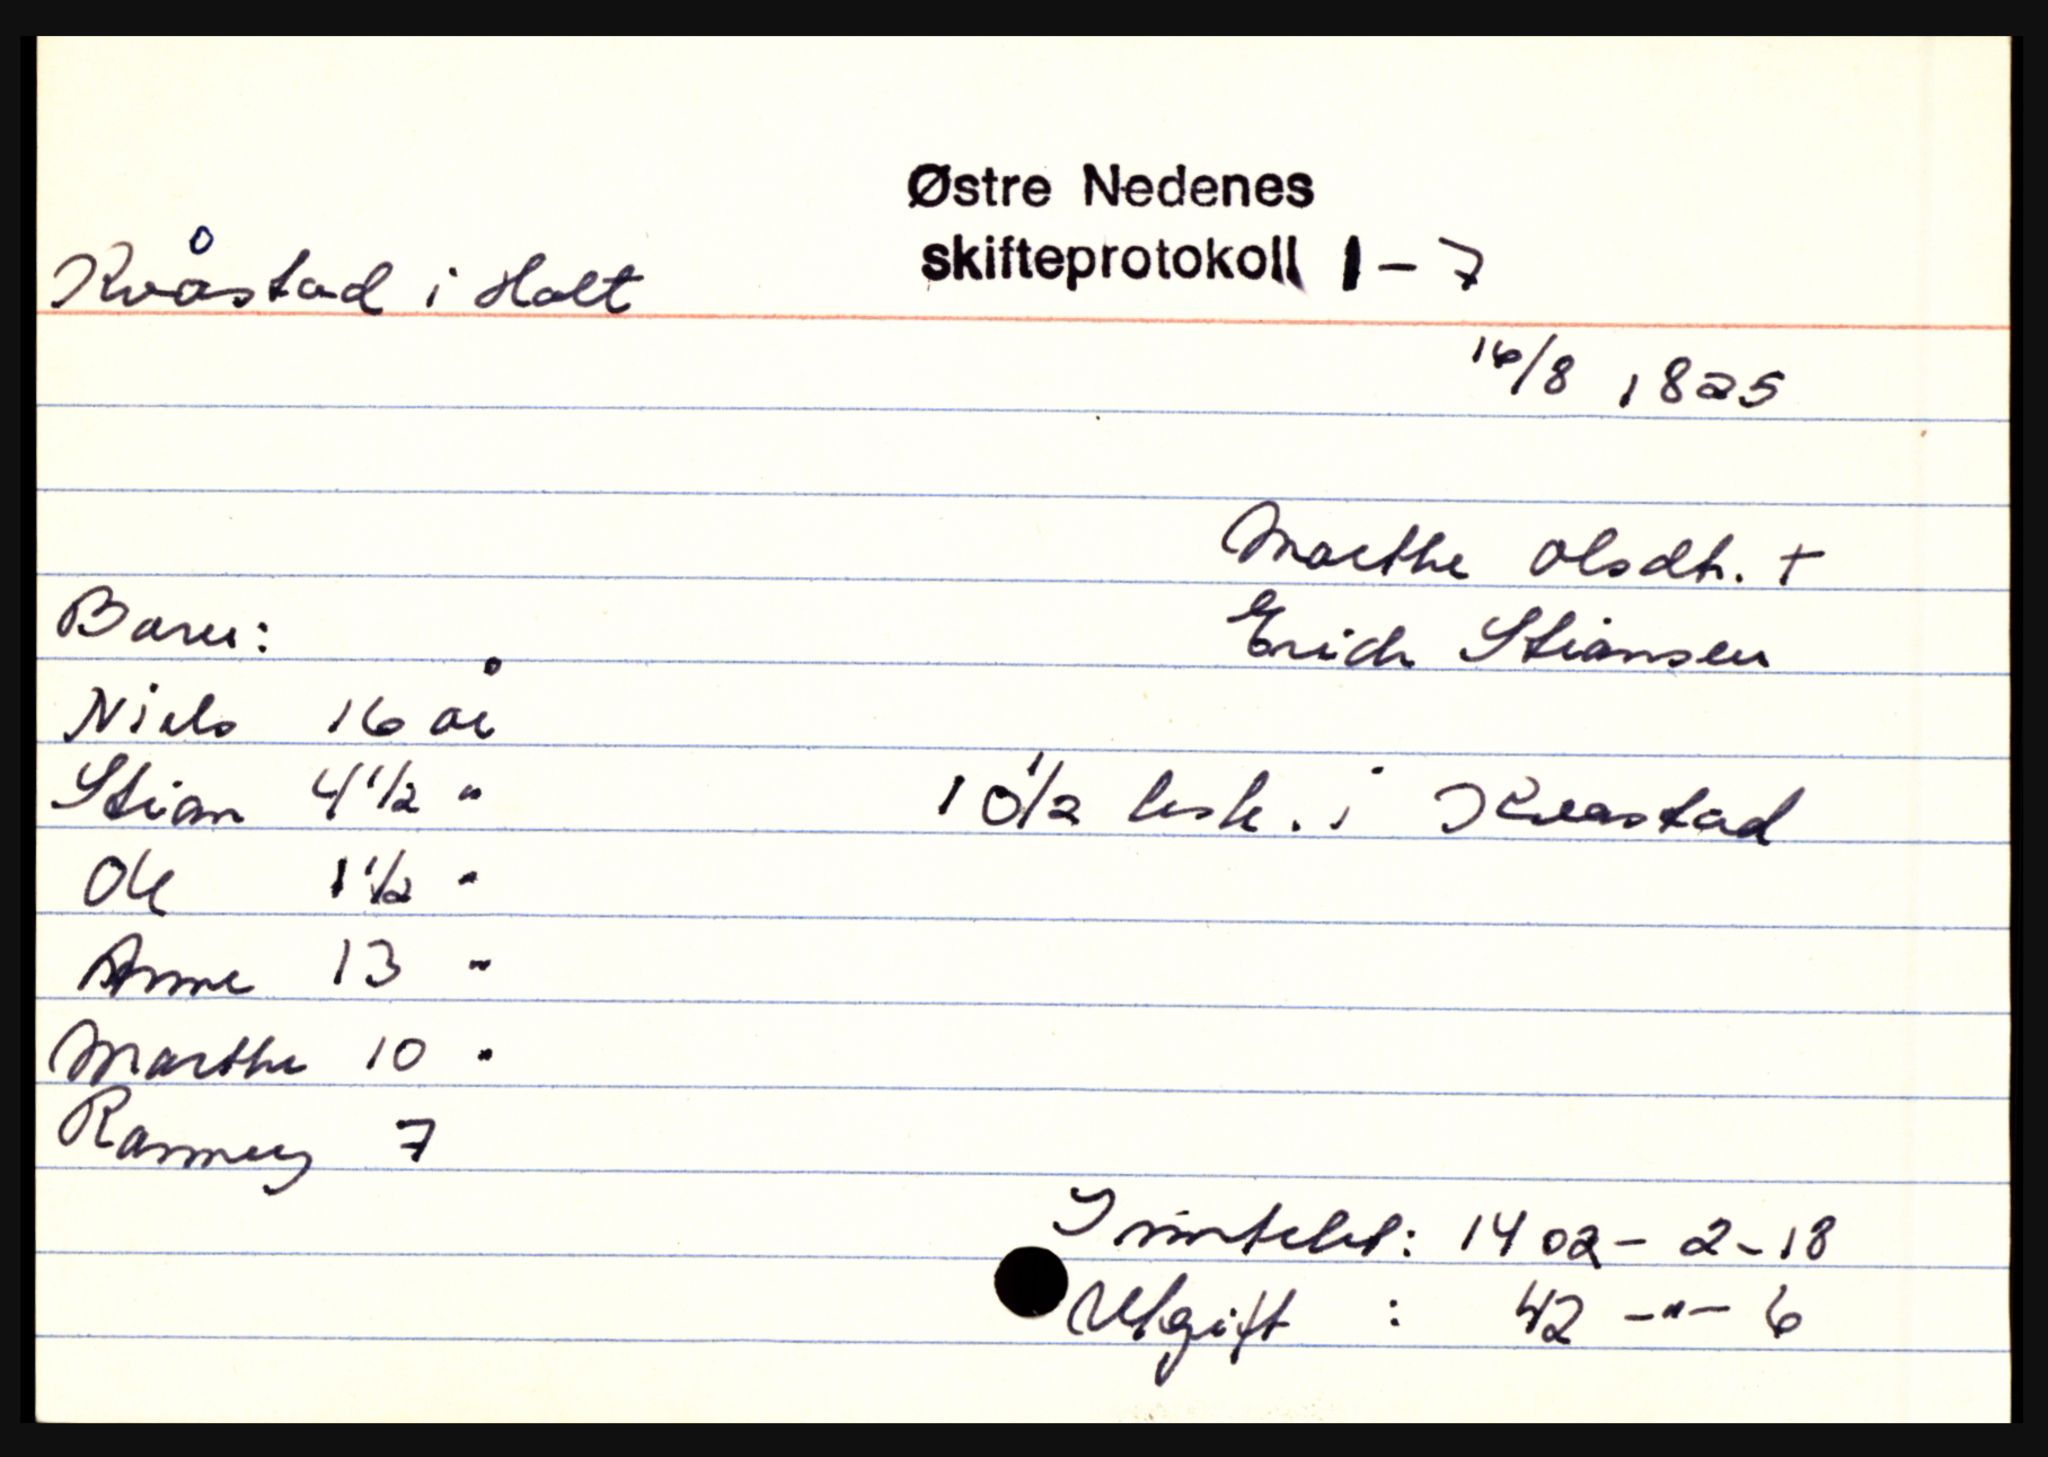 Østre Nedenes
skifteprotokoll 1 – 7
Kvåstad i Holt
16/8 1825
Marthe Olsdtr. +
Erich Stiansen
Barn:
Niels 16 år
Stian 4 1/2 "
Ole 1 1/2 "
Anne 13 "
Marthe 10 "
Rasmus 7
1 0 1/2 besk. i Kvastad
Inntekt: 1402 – 2 – 18
Utgift : 42 – " – 6